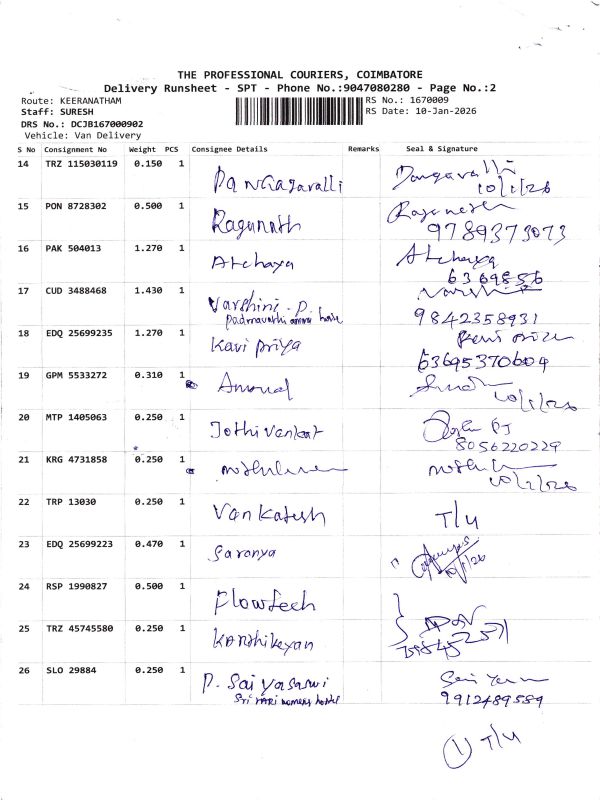 THE PROFESSIONAL COURIERS, COIMBATORE
Delivery Runsheet - SPT - Phone No.:9047080280 - Page No.:2
Route: KEERANATHAM
RS No.: 1670009
Staff: SURESH
RS Date: 10-Jan-2026
DRS No.: DCJB167000902
Vehicle: Van Delivery
S No Consignment No Weight PCS Consignee Details Remarks Seal & Signature
14 TRZ 115030119 0.150 1
10/1/26
15 PON 8728302 0.500 1 Ragunath
9789373073
16 PAK 504013 1.270 1 Atchaya Atchaya
6369856
17 CUD 3488468 1.430 1 Varshini. P.
9842358931
18 EDQ 25699235 1.270 1 Kavi priya
63695370604
19 GPM 5533272 0.310 1
10/1/26
20 MTP 1405063 0.250 1 Jothi Venkat
8056220229
21 KRG 4731858 0.250 1
10/1/26
22 TRP 13030 0.250 1 Vankatesh T/4
23 EDQ 25699223 0.470 1 Saronya
10/1/26
24 RSP 1990827 0.500 1 Flowtech
25 TRZ 45745580 0.250 1
26 SLO 29884 0.250 1 P. Sai Yasaswi
Sri HARI womens hostel 9912489589
1 T/4